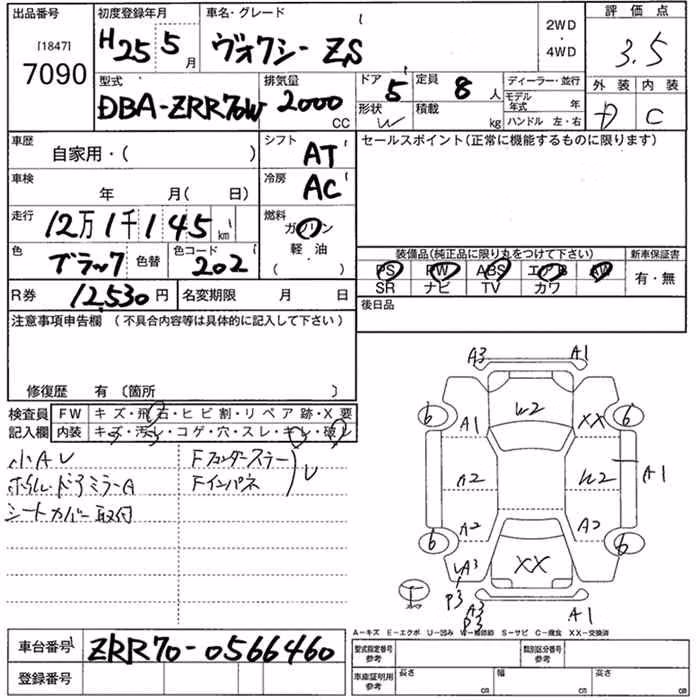 出品番号 初度登録年月 車名・グレード 評価点
[1847]
7090
H25 5月 ヴォクシー ZS 2WD・4WD 3.5
型式 排気量 ドア 定員 ディーラー・並行 外装 内装
DBA-ZRR70W 2000 CC 5 8人 モデル年式 年 D C
形状 W 積載 kg ハンドル 左・右
車歴 シフト セールスポイント(正常に機能するものに限ります)
自家用・( ) AT
車検 冷房
年 月( 日) AC
走行 燃料
12万1千145km ガソリン
色 色替 色コード 軽・油
ブラック 202 ( )
装備品(純正品に限り丸をつけて下さい) 新車保証書
PS PW ABS エアB AW 有・無
SR ナビ TV カワ
R券 12,530円 名変期限 月 日 後日品
注意事項申告欄 (不具合内容等は具体的に記入して下さい)
修復歴 有 〔箇所 〕
検査員 FW キズ・飛石・ヒビ割・リペア跡・X要
記入欄 内装 キズ・汚レ・コゲ・穴・スレ・キレ・破レ
小Aレ Fフェンダーステラー
ホイル・ドアミラーA Fインパネ レ
シートカバー取付
A3 A1
6 W2 6
A1 XX
A2 W2 A1
A2 A2
6 XX 6
A3
P3
A3 A1
P3
A-キズ E-エクボ U-凹み W-補修跡 S-サビ C-腐食 XX-交換済
車台番号 ZRR70-0566460 型式指定番号 参考 類別区分番号 参考
登録番号 車庫証明用 参考 長さ cm 幅 cm 高さ cm